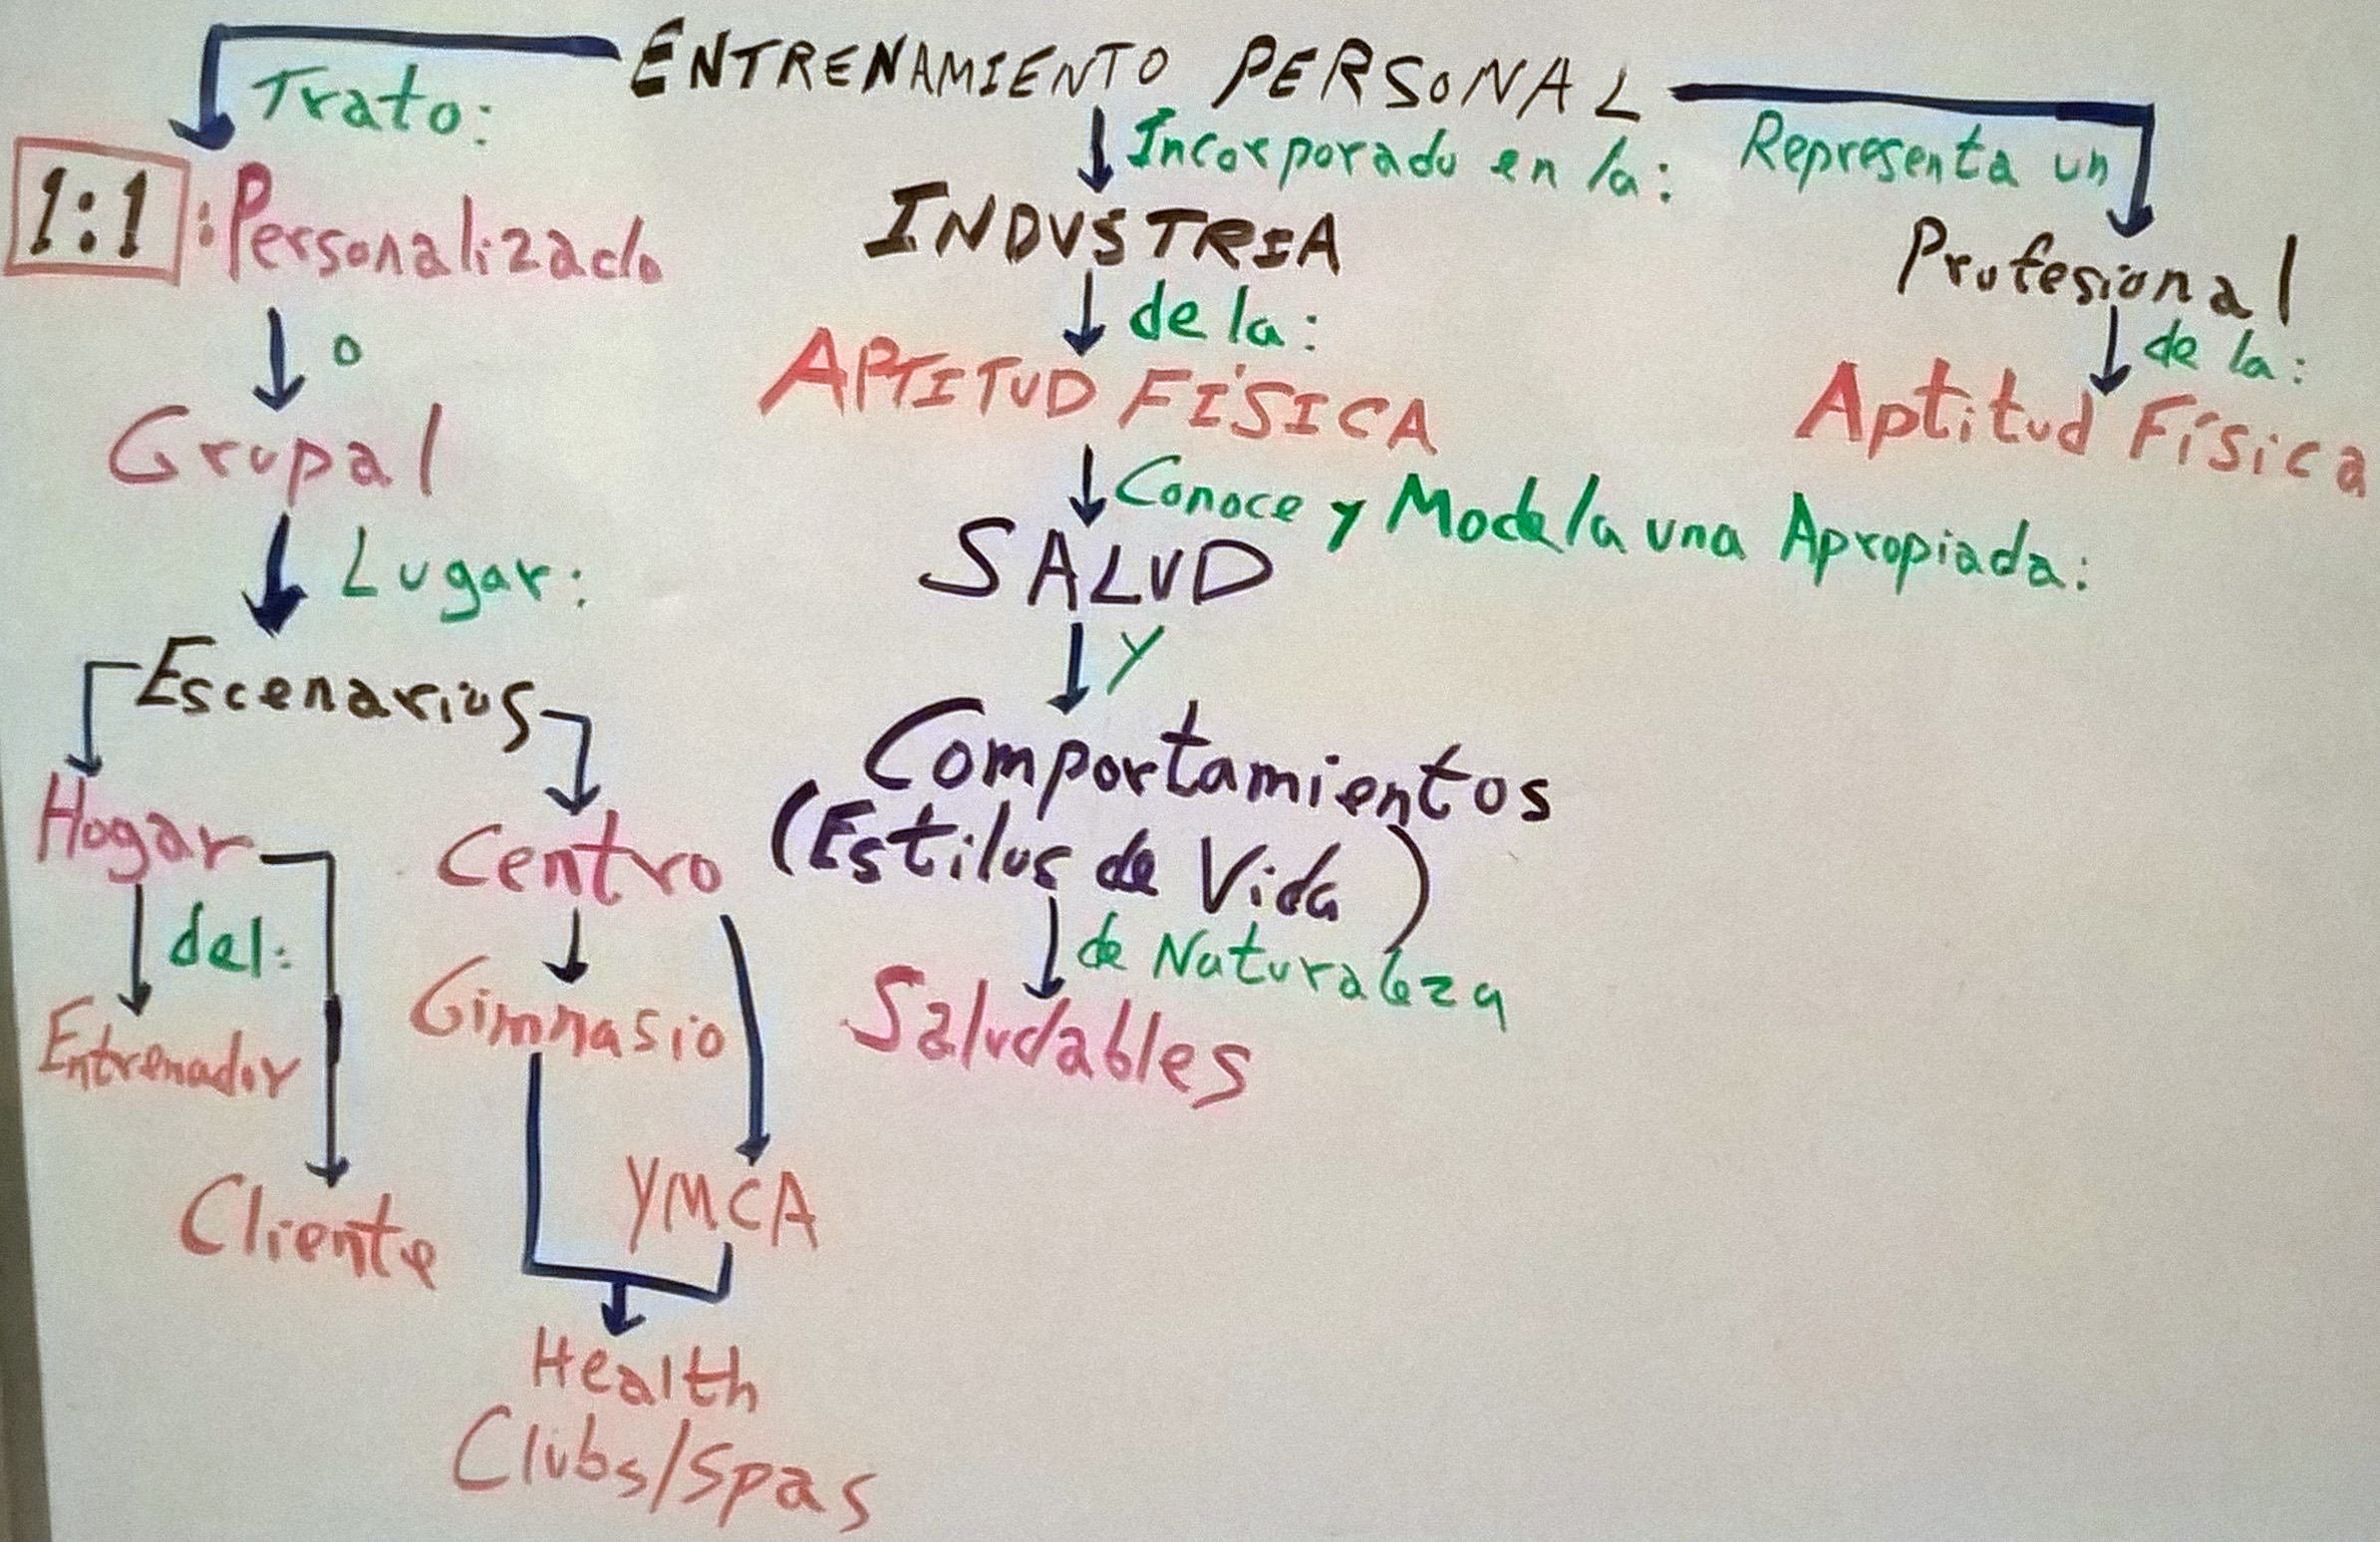 ENTRENAMIENTO PERSONAL
Trato:
1:1 : Personalizado
o
Grupal
Lugar:
Escenarios
Hogar
del:
Entrenador
Cliente
Centro
Gimnasio
YMCA
Health
Clubs/Spas
Incorporado en la:
INDUSTRIA
de la:
APTITUD FÍSICA
Conoce y Modela una Apropiada:
SALUD
y
Comportamientos
(Estilos de Vida)
de Naturaleza
Saludables
Representa un
Profesional
de la:
Aptitud Física